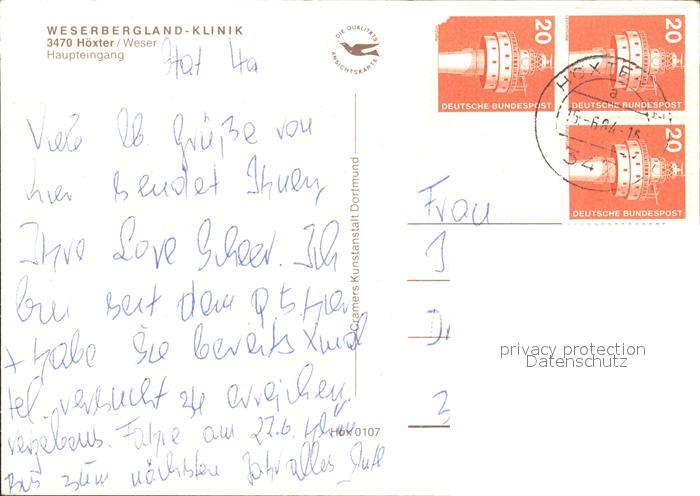 WESERBERGLAND-KLINIK
3470 Höxter / Weser
Haupteingang
DIE QUALITÄTS
ANSICHTSKARTE
Stat 4a
Viele lb. Grüße von
hier sendet Ihnen,
Ihre Lore Scheer. Ich
bin seit dem 9.5. hier
+ habe Sie bereits xmal
tel. versucht zu erreichen,
vergebens. Fahre am 27.6. heim
Bis zum nächsten Jahr alles Gute
Cramers Kunstanstalt Dortmund
Höx 0107
20
DEUTSCHE BUNDESPOST
20
DEUTSCHE BUNDESPOST
20
DEUTSCHE BUNDESPOST
HÖXTE
a
-6.84-16
34
Frau
privacy protection
Datenschutz